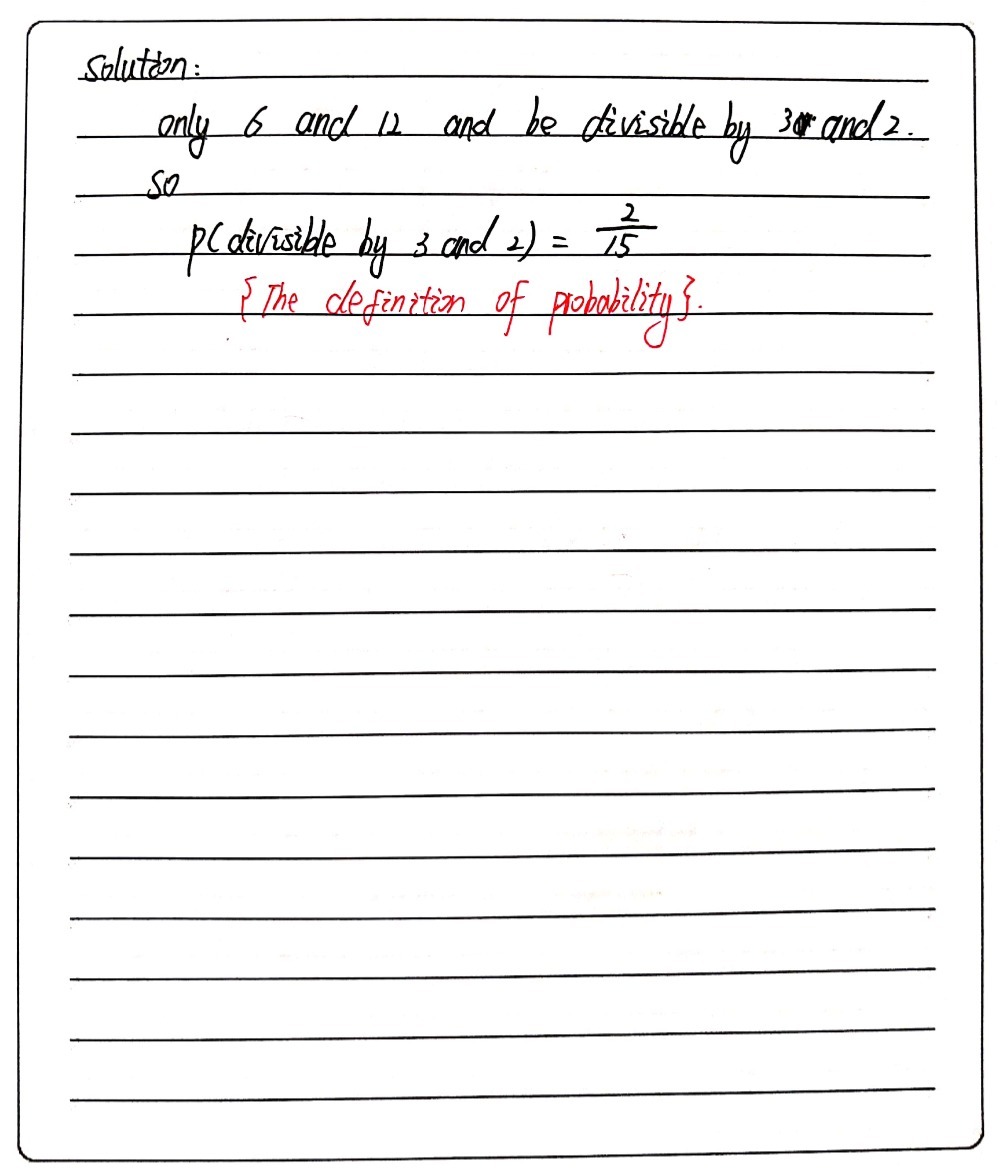 Solution:
only 6 and 12 and be divisible by 3 and 2.
so
P(divisible by 3 and 2) = 2/15
{The definition of probability}.